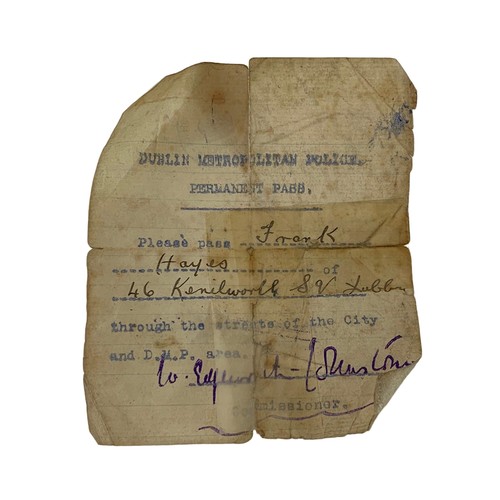 DUBLIN METROPOLITAN POLICE.
PERMANENT PASS.
Please pass Frank
Hayes of
46 Kenilworth Sq Dublin
through the streets of the City
and D.M.P. area.
W. Edgeworth-Johnstone
Commissioner.